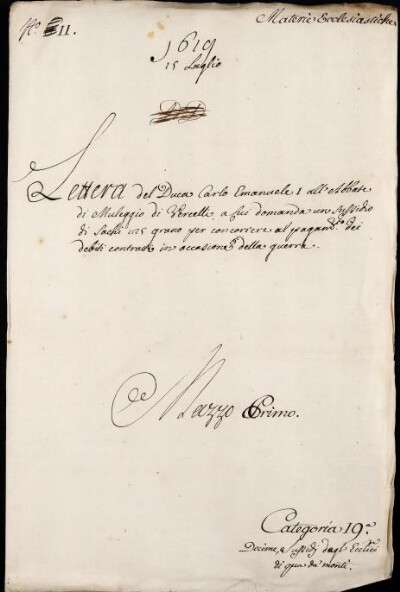 N.º 11.
Materie Ecclesiastiche
1619
15 Luglio
Lettera del Duca Carlo Emanuele I all'Abbate
di Muleggio di Vercelli, a cui domanda un sussidio
di Sachi 125 grano per concorrere al pagam.to dei
debiti contratti in occasione della guerra.
Mazzo Primo.
Categoria 19.a
Decime, e sussidj degli Eccl.ci
di qua da' monti.